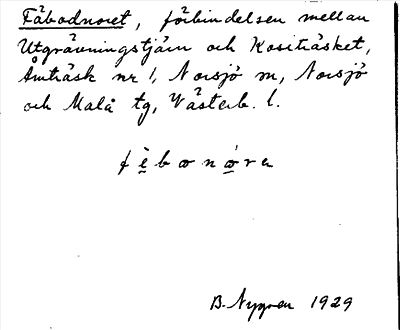 Fäbodnoret, förbindelsen mellan
Utgrävningstjärn och Kositräsket,
Åmträsk nr 1, Norsjö sn, Norsjö
och Malå tg, Västerb. l.
B. Nygren 1929